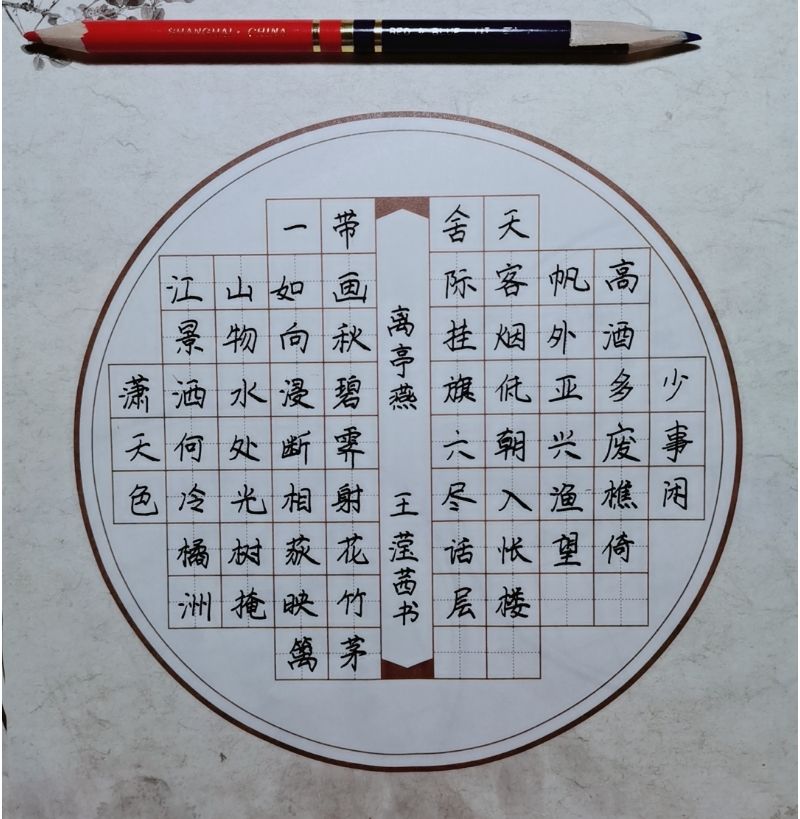 SHANGHAI · CHINA
RED & BLUE
一带
江山如画
景物向秋
潇洒水浸碧
天何处断霁
色冷光相射
橘树荻花
洲掩映竹
篱茅
离亭燕 王滢茜书
舍天
际客帆高
挂烟外酒
旗低亚多少
六朝兴废事
尽入渔樵闲
话怅望倚
层楼